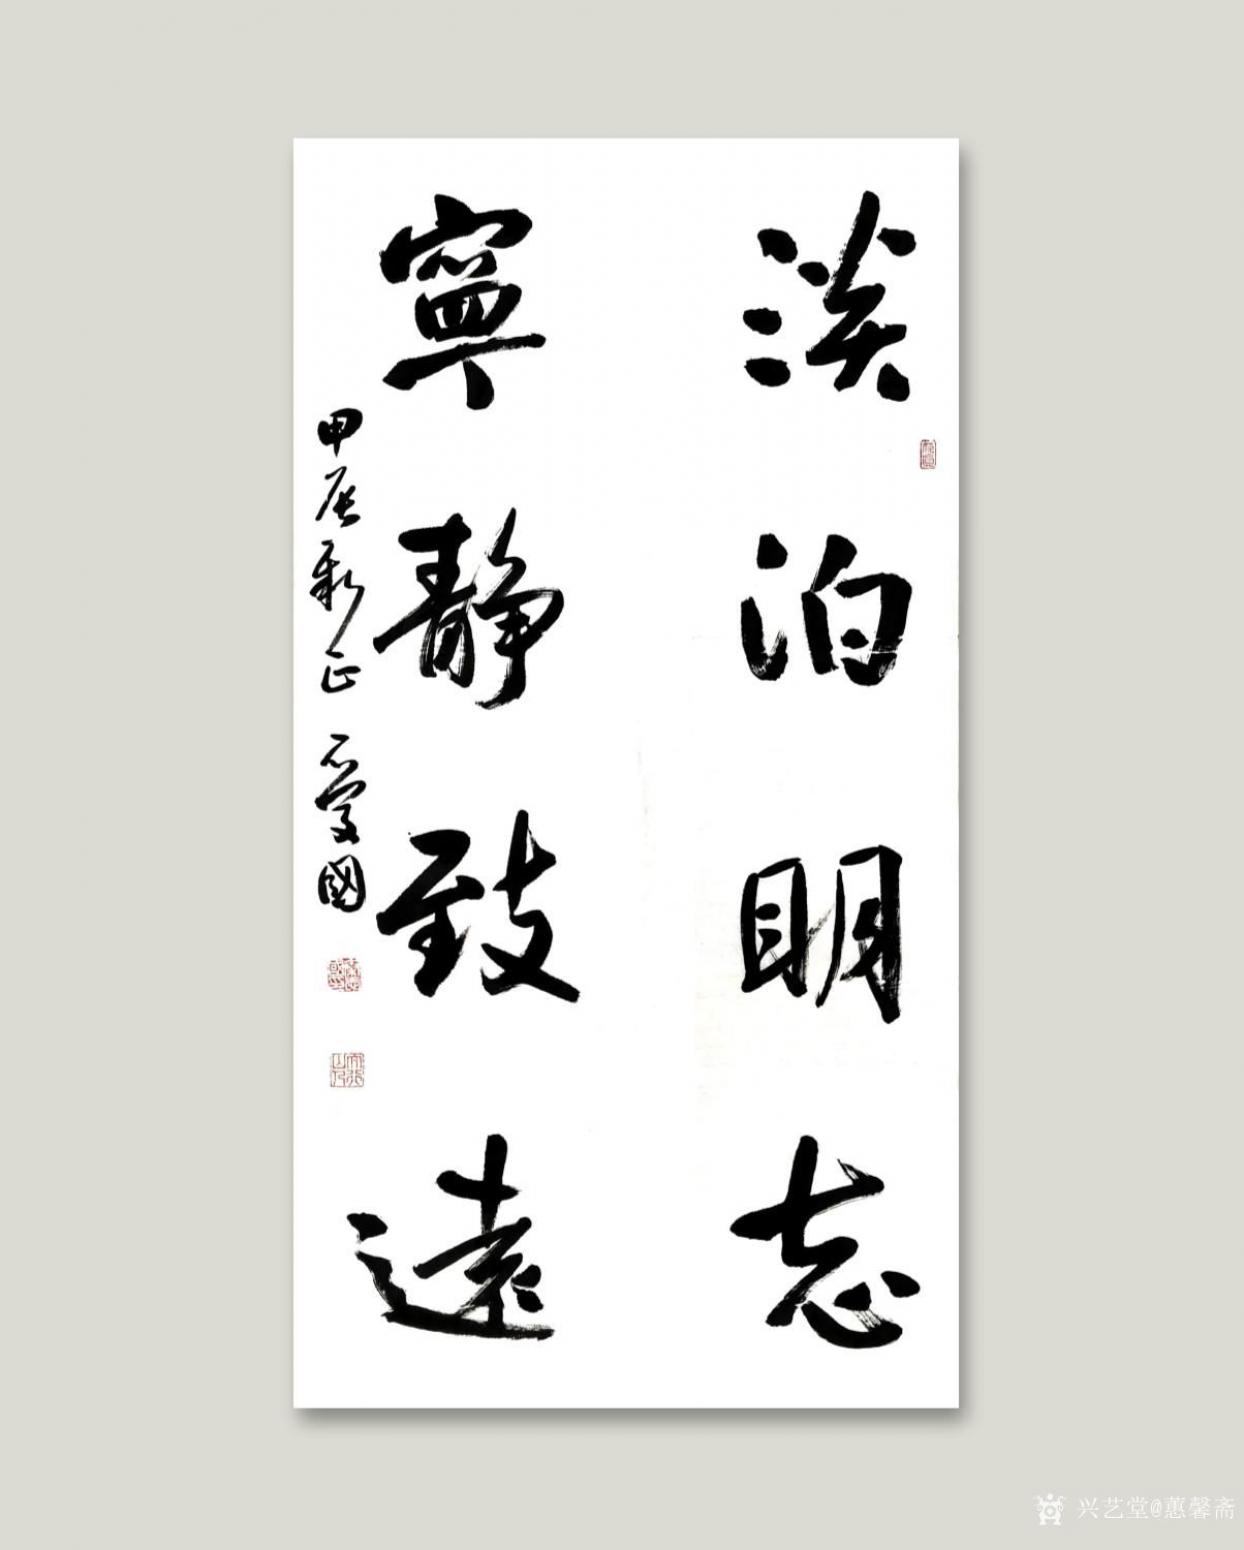 淡泊明志
寧靜致遠
甲辰新正 石愛國
兴艺堂@蕙馨斋